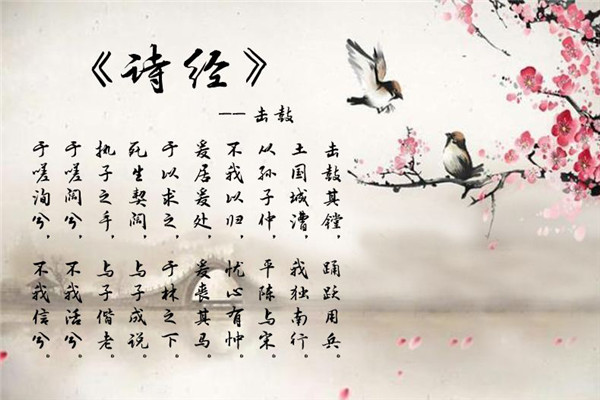 《诗经》
-- 击鼓
击鼓其镗，踊跃用兵。
土国城漕，我独南行。
从孙子仲，平陈与宋。
不我以归，忧心有忡。
爰居爰处，爰丧其马。
于以求之，于林之下。
死生契阔，与子成说。
执子之手，与子偕老。
于嗟阔兮，不我活兮。
于嗟洵兮，不我信兮。